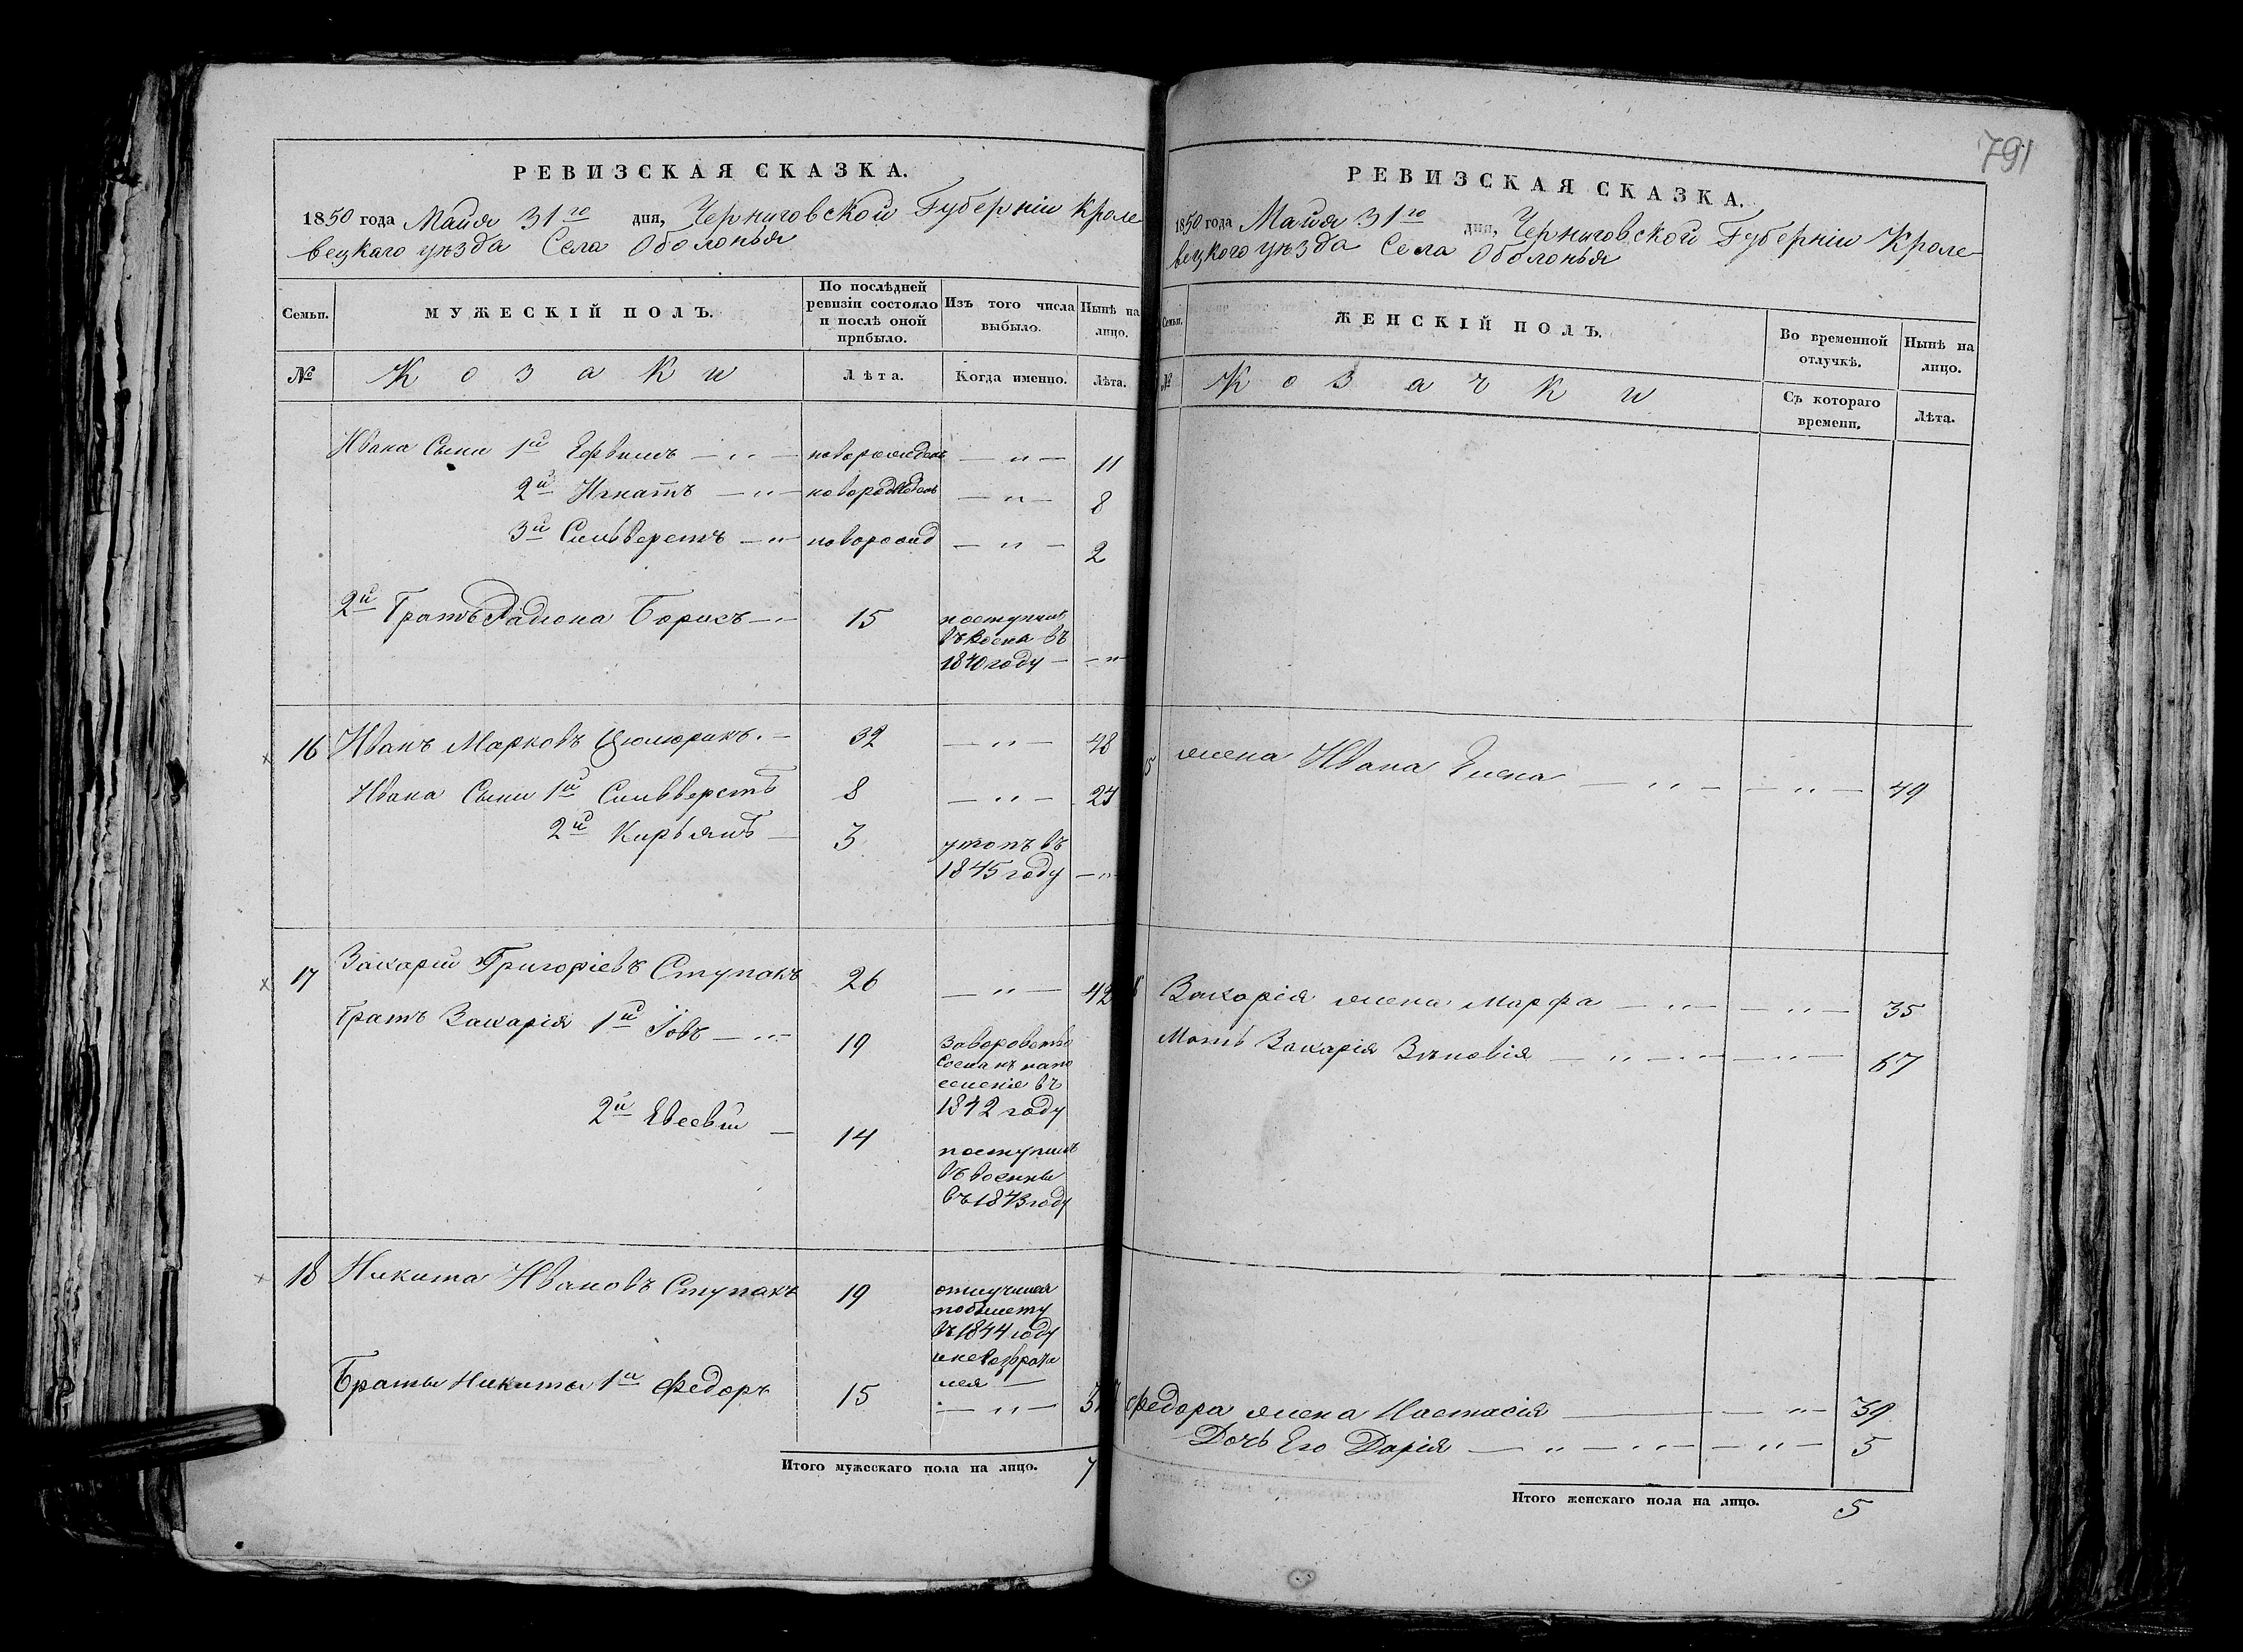 791
РЕВИЗСКАЯ СКАЗКА.
1850 года Майя 31го дня, Черниговской Губерніи Кроле
вецкаго уѣзда Села Оболонья
Семьи. МУЖЕСКІЙ ПОЛЪ. По послѣдней ревизіи состояло и послѣ оной прибыло. Изъ того числа выбыло. Нынѣ на лицо.
№ Козаки Лѣта. Когда именно. Лѣта.
Ивана Сыны 1й Ефимъ — „ — новорожденъ — „ — 11
2й Игнатъ — „ — новорожденъ — „ — 8
3й Сильверстъ — „ новорожд — „ — 2
2й Братъ Радіона Борисъ — 15 поступилъ
въ
1840 году — — „
16 Иванъ Марковъ — 32 — „ — 48
Ивана Сыны 1й Сильверстъ 8 — „ — 24
2й Кирьянъ — 3 утопъ въ
1845 году — „
17 Захарій Григоріевъ Ступакъ 26 — „ — 42
Братъ Захарія 1й Іовъ — „ — 19 За воровство
Сосланъ на по
селеніе въ
1842 году
2й Евсевій — 14 поступилъ
въ военны
въ 1843 году
18 Никита Ивановъ Ступакъ 19 отлучился
по билету
въ 1844 году
и не возврати
лся —
Браты Никиты 1й Федоръ 15 — „ —
Итого мужескаго пола на лицо. 7
РЕВИЗСКАЯ СКАЗКА.
1850 года Майя 31го дня, Черниговской Губерніи Кроле
вецкого уѣзда Села Оболонья
Семьи. ЖЕНСКІЙ ПОЛЪ. Во временной отлучкѣ. Нынѣ на лицо.
№ Козачки Съ котораго времени. Лѣта.
жена Ивана Елена — „ — — „ — 49
Захарія жена Марфа — „ — — „ — 35
Мать Захарія Зѣновія — „ — „ — „ — 67
Федора жена Настасія — „ — 39
Дочь Его Дарія — „ — „ — — „ — 5
Итого женскаго пола на лицо. 5